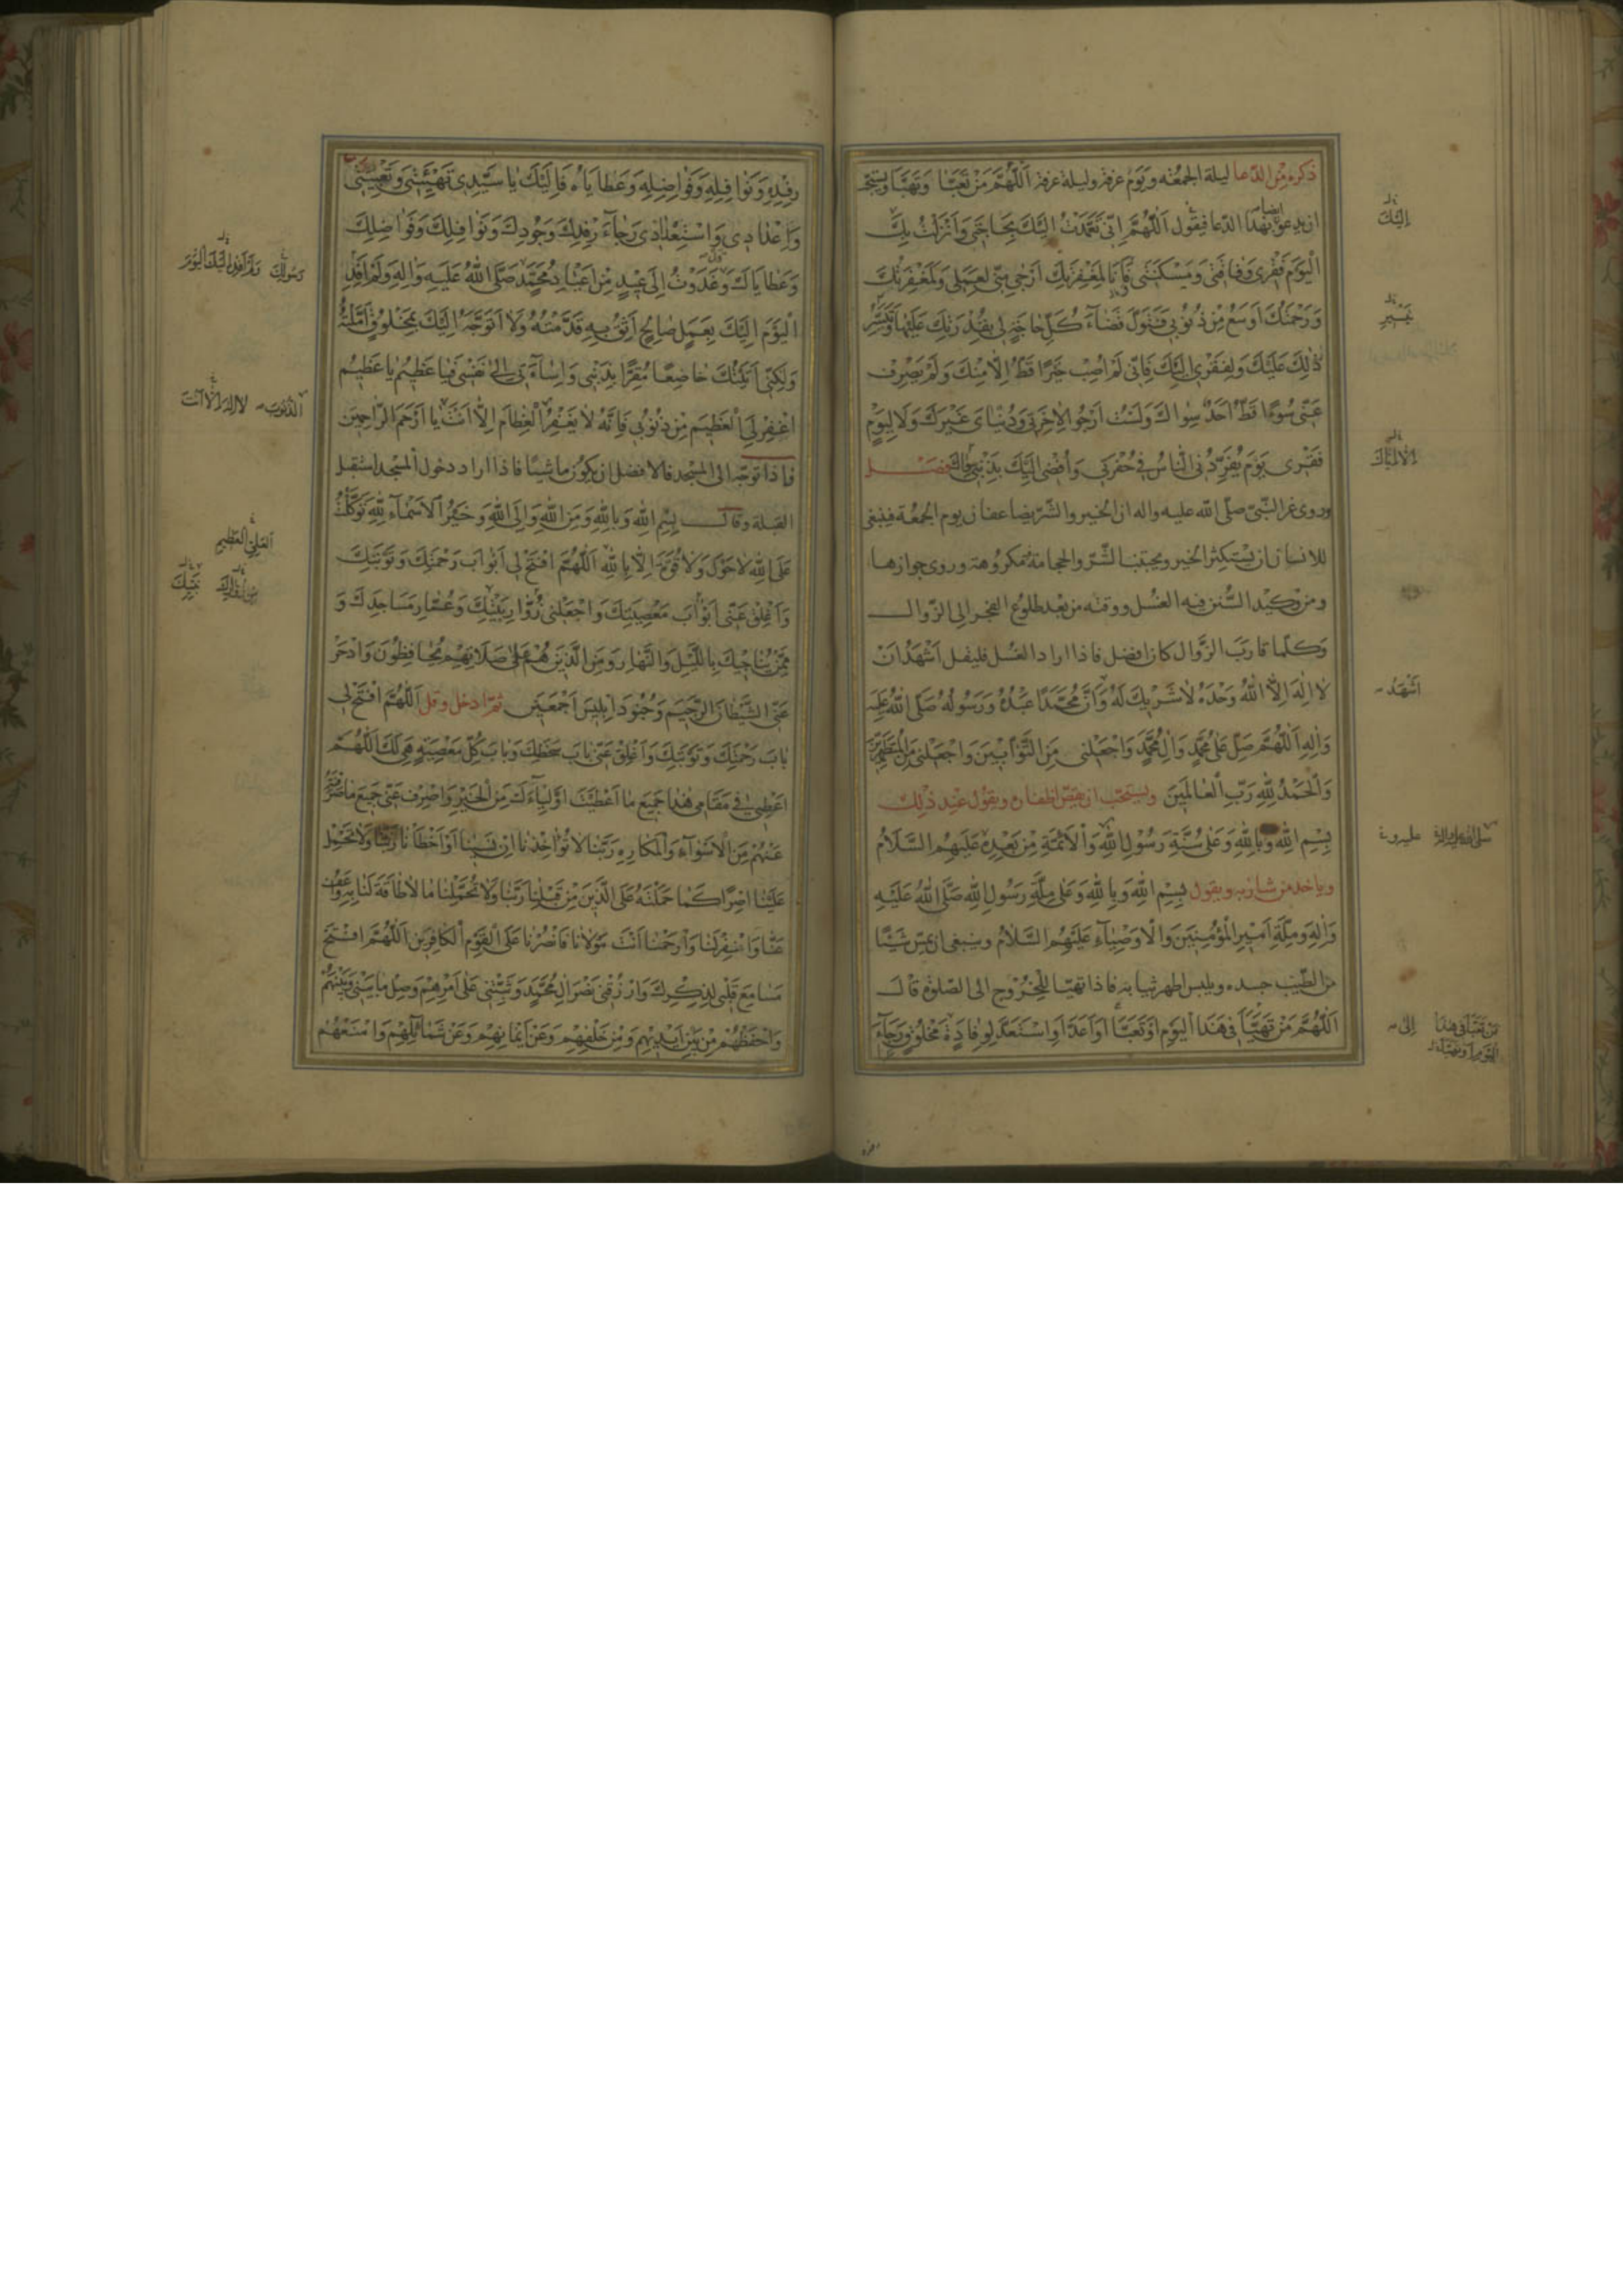 ذكره من الدعا ليلة الجمعه ويوم عرفة وليلة عرفة اَللّٰهُمَّ مَنْ تَعَبَّاَ وَتَهَيَّاَ ويستحب
ان يدعو ايضا بهذا الدعا فيقول اَللّٰهُمَّ اِنّى تَعَمَّدْتُ اِلَيْكَ بِحَاجَتى وَاَنْزَلْتُ بِكَ
الْيَوْمَ فَقْرى وَفاقَتى وَمَسْكَنَتى فَاَنَا لِمَغْفِرَتِكَ اَرْجى مِنّى لِعَمَلى وَلَمَغْفِرَتُكَ
وَرَحْمَتُكَ اَوْسَعُ مِنْ ذُنُوبى فَتَوَلَّ قَضاءَ كُلِّ حاجَةٍ لى بِقُدْرَتِكَ عَلَيْها وَتَيَسُّرِ
ذٰلِكَ عَلَيْكَ وَلِفَقْرى اِلَيْكَ فَاِنّى لَمْ اُصِبْ خَيْرًا قَطُّ اِلّا مِنْكَ وَلَمْ يَصْرِفْ
عَنّى سُوءًا قَطُّ اَحَدٌ سِواكَ وَلَسْتُ اَرْجُو لِاٰخِرَتى وَدُنْيَاىَ غَيْرَكَ وَلا لِيَوْمِ
فَقْرى يَوْمَ يُفْرِدُنِى النّاسُ فى حُفْرَتى وَاُفْضى اِلَيْكَ بِذَنْبى فصل
وروى عن النبى صلى الله عليه واله ان الخير والشر يضاعفان يوم الجمعة فينبغى
للانسان ان يستكثر الخير ويجتنب الشر والحجامة مكروهة وروى جوازها
ومن وكيد السنن فيه الغسل ووقته من بعد طلوع الفجر الى الزوال
وكلما قارب الزوال كان افضل فاذا اراد الغسل فليقل اَشْهَدُ اَنْ
لا اِلٰهَ اِلَّا اللّٰهُ وَحْدَهُ لا شَريكَ لَهُ وَاَنَّ مُحَمَّدًا عَبْدُهُ وَرَسُولُهُ صَلَّى اللّٰهُ عَلَيْهِ
وَاٰلِهِ اَللّٰهُمَّ صَلِّ عَلى مُحَمَّدٍ وَاٰلِ مُحَمَّدٍ وَاجْعَلْنى مِنَ التَّوّابينَ وَاجْعَلْنى مِنَ الْمُتَطَهِّرينَ
وَالْحَمْدُ لِلّٰهِ رَبِّ الْعالَمينَ ويستحب ان يقص اظفاره ويقول عند ذلك
بِسْمِ اللّٰهِ وَبِاللّٰهِ وَعَلى سُنَّةِ رَسُولِ اللّٰهِ وَالْاَئِمَّةِ مِنْ بَعْدِهِ عَلَيْهِمُ السَّلامُ
وياخذ من شاربه ويقول بِسْمِ اللّٰهِ وَبِاللّٰهِ وَعَلى مِلَّةِ رَسُولِ اللّٰهِ صَلَّى اللّٰهُ عَلَيْهِ
وَاٰلِهِ وَمِلَّةِ اَميرِ الْمُؤْمِنينَ وَالْاَوْصِياءِ عَلَيْهِمُ السَّلامُ وينبغى ان يمس شيئا
من الطيب جسده ويلبس اطهر ثيابه فاذا تهيا للخروج الى الصلوة قال
اَللّٰهُمَّ مَنْ تَهَيَّاَ فى هٰذَا الْيَوْمِ اَوْ تَعَبَّاَ اَوْ اَعَدَّ اَوِ اسْتَعَدَّ لِوِفادَةِ مَخْلُوقٍ رَجاءَ
اِلَيْكَ
اِلّا اِيّاكَ
اَشْهَدُ
مَنْ تَعَبَّأَ فى هٰذَا
الْيَوْمِ اَوْ تَهَيَّأَ
رِفْدِهِ وَنَوافِلِهِ وَفَواضِلِهِ وَعَطاياهُ فَاِلَيْكَ يا سَيِّدى تَهْيِئَتى وَتَعْبِيَتى
وَاِعْدادى وَاسْتِعْدادى رَجاءَ رِفْدِكَ وَجُودِكَ وَنَوافِلِكَ وَفَواضِلِكَ
وَعَطاياكَ وَغَدَوْتُ اِلى عيدٍ مِنْ اَعْيادِ مُحَمَّدٍ صَلَّى اللّٰهُ عَلَيْهِ وَاٰلِهِ وَلَمْ اَفِدْ
الْيَوْمَ اِلَيْكَ بِعَمَلٍ صالِحٍ اَثِقُ بِهِ قَدَّمْتُهُ وَلا اَتَوَجَّهُ اِلَيْكَ بِمَخْلُوقٍ اَمَّلْتُهُ
وَلٰكِنّى اَتَيْتُكَ خاضِعًا مُقِرًّا بِذَنْبى وَاِساءَتى اِلى نَفْسى فَيا عَظيمُ يا عَظيمُ
اغْفِرْ لِىَ الْعَظيمَ مِنْ ذُنُوبى فَاِنَّهُ لا يَغْفِرُ الْعِظامَ اِلّا اَنْتَ يا اَرْحَمَ الرّاحِمينَ
فاذا توجه الى المسجد فالافضل ان يكون ماشيا فاذا اراد دخول المسجد استقبل
القبلة وقال بِسْمِ اللّٰهِ وَبِاللّٰهِ وَمِنَ اللّٰهِ وَاِلَى اللّٰهِ وَخَيْرُ الْاَسْماءِ لِلّٰهِ تَوَكَّلْتُ
عَلَى اللّٰهِ لا حَوْلَ وَلا قُوَّةَ اِلّا بِاللّٰهِ اَللّٰهُمَّ افْتَحْ لى اَبْوابَ رَحْمَتِكَ وَتَوْبَتِكَ
وَاَغْلِقْ عَنّى اَبْوابَ مَعْصِيَتِكَ وَاجْعَلْنى زُوّارِ بَيْتِكَ وَعُمّارِ مَساجِدِكَ وَ
مِمَّنْ يُناجيكَ بِاللَّيْلِ وَالنَّهارِ وَمِنَ الَّذينَ هُمْ عَلى صَلاتِهِمْ يُحافِظُونَ وَادْحَرْ
عَنِّى الشَّيْطانَ الرَّجيمَ وَجُنُودَ اِبْليسَ اَجْمَعينَ ثم ادخل وقل اَللّٰهُمَّ افْتَحْ لى
بابَ رَحْمَتِكَ وَتَوْبَتِكَ وَاَغْلِقْ عَنّى بابَ سَخَطِكَ وَبابَ كُلِّ مَعْصِيَةٍ هِىَ لَكَ اَللّٰهُمَّ
اَعْطِنى فى مَقامى هٰذا جَميعَ ما اَعْطَيْتَ اَوْلِياءَكَ مِنَ الْخَيْرِ وَاصْرِفْ عَنّى جَميعَ ما صَرَفْتَهُ
عَنْهُمْ مِنَ الْاَسْواءِ وَالْمَكارِهِ رَبَّنا لا تُؤاخِذْنا اِنْ نَسينا اَوْ اَخْطَأْنا رَبَّنا وَلا تَحْمِلْ
عَلَيْنا اِصْرًا كَما حَمَلْتَهُ عَلَى الَّذينَ مِنْ قَبْلِنا رَبَّنا وَلا تُحَمِّلْنا ما لا طاقَةَ لَنا بِهِ وَاعْفُ
عَنّا وَاغْفِرْ لَنا وَارْحَمْنا اَنْتَ مَوْلانا فَانْصُرْنا عَلَى الْقَوْمِ الْكافِرينَ اَللّٰهُمَّ افْتَحْ
مَسامِعَ قَلْبى لِذِكْرِكَ وَارْزُقْنى نَصْرَ اٰلِ مُحَمَّدٍ وَثَبِّتْنى عَلى اَمْرِهِمْ وَصِلْ ما بَيْنى وَبَيْنَهُمْ
وَاحْفَظْهُمْ مِنْ بَيْنِ اَيْديهِمْ وَمِنْ خَلْفِهِمْ وَعَنْ اَيْمانِهِمْ وَعَنْ شَمائِلِهِمْ وَامْنَعْهُمْ
رَسُولِكَ وَلَمْ اَفِدْ اِلَيْكَ الْيَوْمَ
الذُّنُوبَ لا اِلٰهَ اِلّا اَنْتَ
الْعَلِىِّ الْعَظيمِ